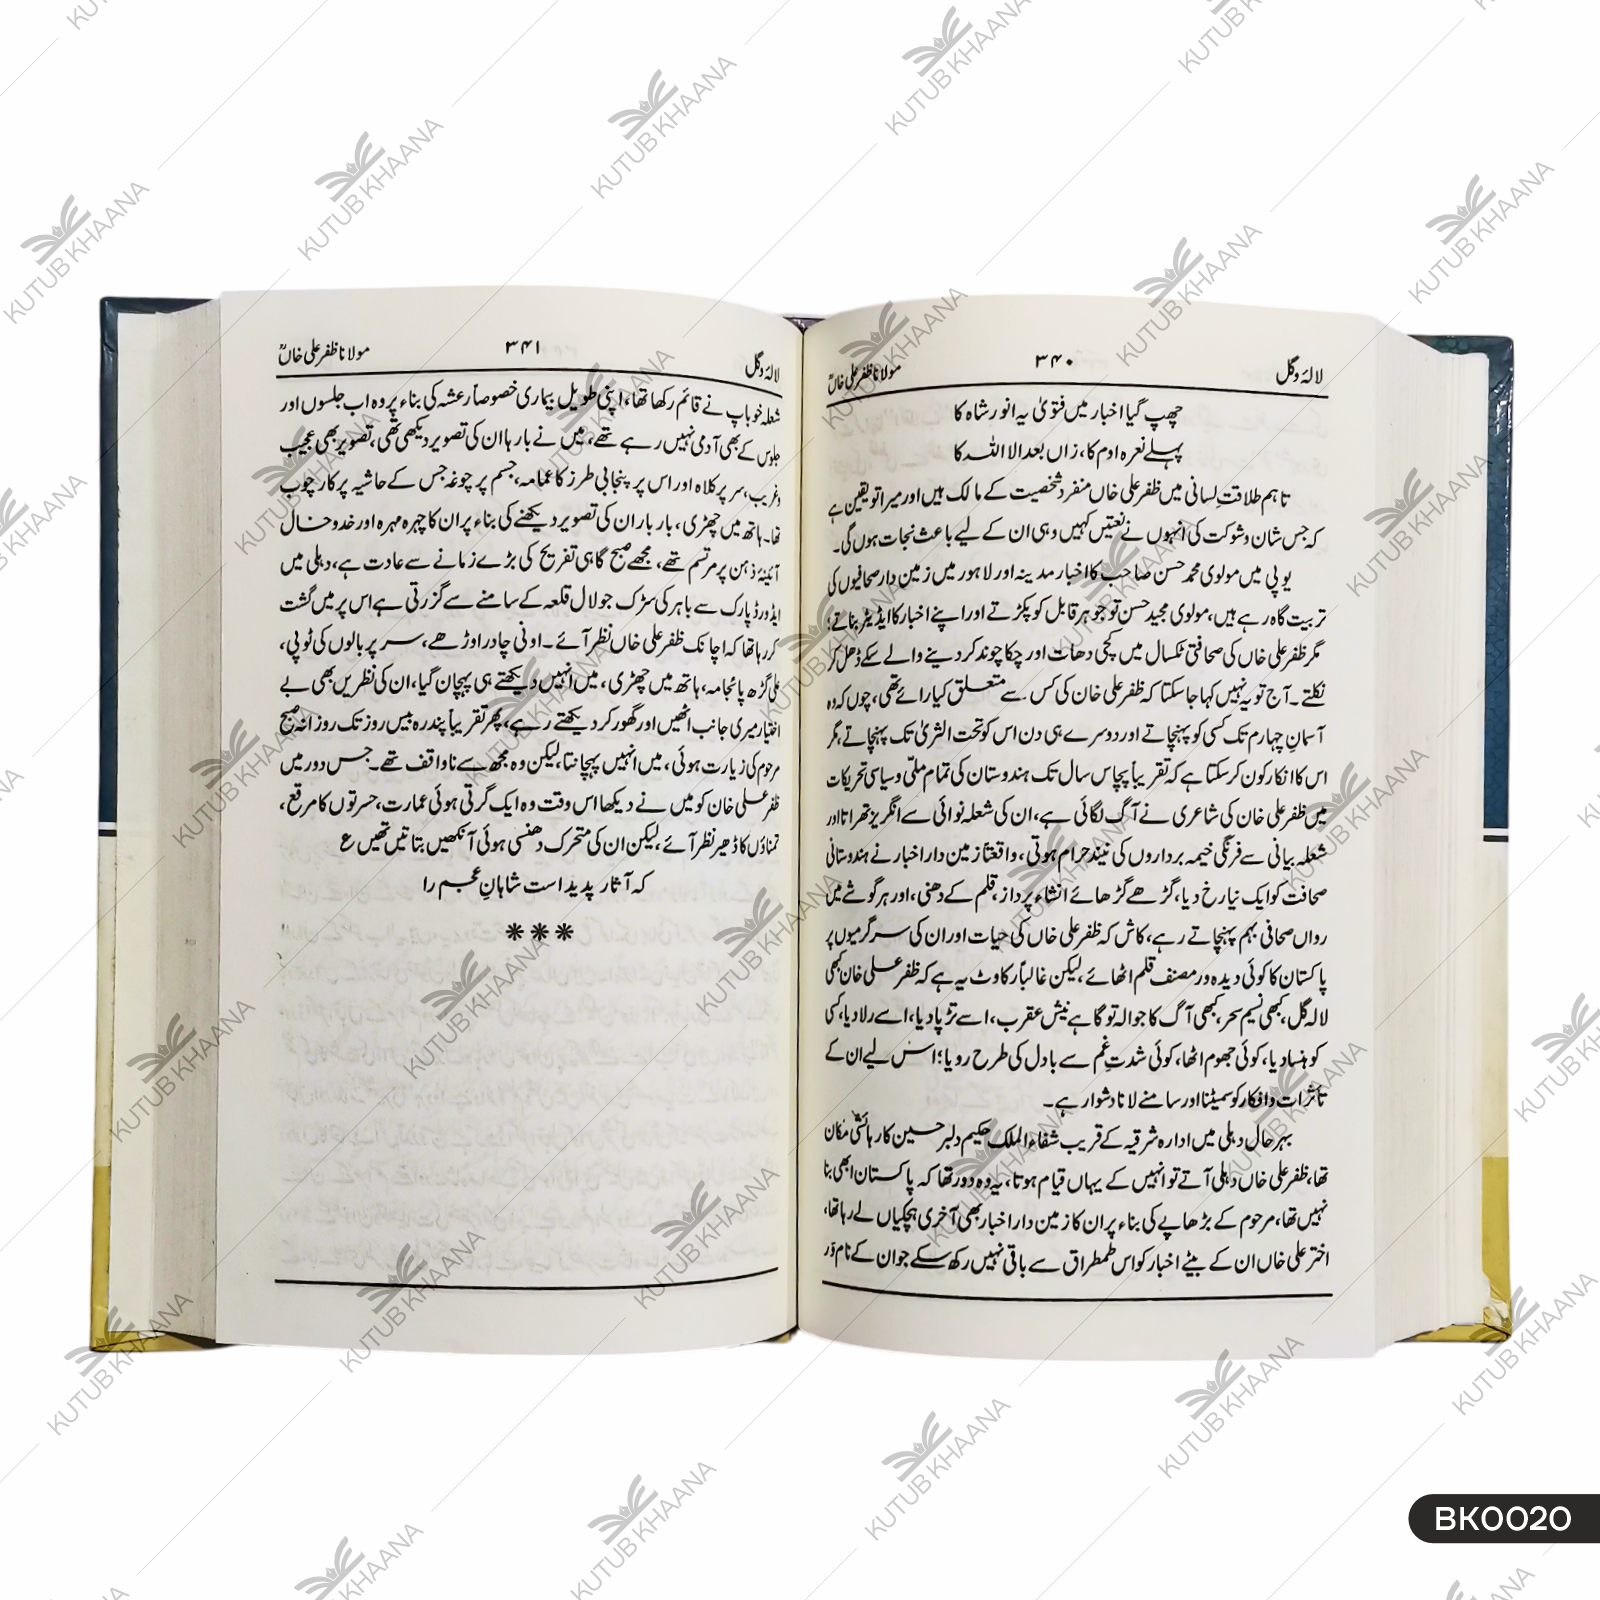 لالہ وگل
۳۴۰
مولانا ظفر علی خاںؒ
چھپ گیا اخبار میں فتویٰ یہ انور شاہ کا
پہلے نعرہ اوم کا، زاں بعد الا اللہ کا
تاہم طلاقتِ لسانی میں ظفر علی خاں منفرد شخصیت کے مالک ہیں اور میرا تو یقین ہے
کہ جس شان و شوکت کی انہوں نے نعتیں کہیں وہی ان کے لیے باعث نجات ہوں گی۔
یو پی میں مولوی محمد حسن صاحب کا اخبار مدینہ اور لاہور میں زمین دار صحافیوں کی
تربیت گاہ رہے ہیں، مولوی مجید حسن تو جوہر قابل کو پکڑتے اور اپنے اخبار کا ایڈیٹر بناتے؛
مگر ظفر علی خاں کی صحافتی ٹکسال میں کچی دھات اور چکا چوند کر دینے والے سکے ڈھل کر
نکلتے۔ آج تو یہ نہیں کہا جا سکتا کہ ظفر علی خان کی کس سے متعلق کیا رائے تھی، چوں کہ وہ
آسمانِ چہارم تک کسی کو پہنچاتے اور دوسرے ہی دن اس کو تحت الثریٰ تک پہنچاتے، مگر
اس کا انکار کون کر سکتا ہے کہ تقریباً پچاس سال تک ہندوستان کی تمام ملی و سیاسی تحریکات
میں ظفر علی خان کی شاعری نے آگ لگائی ہے، ان کی شعلہ نوائی سے انگریز تھراتا اور
شعلہ بیانی سے فرنگی خیمہ برداروں کی نیند حرام ہوتی، واقعتاً زمین دار اخبار نے ہندوستانی
صحافت کو ایک نیا رخ دیا، گڑھے گڑھائے انشاء پرداز، قلم کے دھنی، اور ہر گوشے میں
رواں صحافی بہم پہنچاتے رہے، کاش کہ ظفر علی خاں کی حیات اور ان کی سرگرمیوں پر
پاکستان کا کوئی دیدہ ور مصنف قلم اٹھائے، لیکن غالباً رکاوٹ یہ ہے کہ ظفر علی خان کبھی
لالہ گل، کبھی نسیم سحر، کبھی آگ کا جوالہ تو گاہے نیش عقرب، اسے تڑپا دیا، اسے رلا دیا، کسی
کو ہنسا دیا، کوئی جھوم اٹھا، کوئی شدتِ غم سے بادل کی طرح رویا؛ اس لیے ان کے
تاثرات و افکار کو سمیٹنا اور سامنے لانا دشوار ہے۔
بہر حال دہلی میں ادارہ شرقیہ کے قریب شفاء الملک حکیم دلبر حسین کا رہائشی مکان
تھا، ظفر علی خاں دہلی آتے تو انہیں کے یہاں قیام ہوتا، یہ وہ دور تھا کہ پاکستان ابھی بنا
نہیں تھا، مرحوم کے بڑھاپے کی بناء پر ان کا زمین دار اخبار بھی آخری ہچکیاں لے رہا تھا،
اختر علی خاں ان کے بیٹے اخبار کو اس طمطراق سے باقی نہیں رکھ سکے جو ان کے نام ور
لالہ وگل
۳۴۱
مولانا ظفر علی خاںؒ
شعلہ خو باپ نے قائم رکھا تھا، اپنی طویل بیماری خصوصاً رعشہ کی بناء پر وہ اب جلسوں اور
جلوس کے بھی آدمی نہیں رہے تھے، میں نے بارہا ان کی تصویر دیکھی تھی، تصویر بھی عجیب
و غریب، سر پر کلاہ اور اس پر پنجابی طرز کا عمامہ، جسم پر چوغہ جس کے حاشیہ پر کار چوب
تھا۔ ہاتھ میں چھڑی، بار بار ان کی تصویر دیکھنے کی بناء پر ان کا چہرہ مہرہ اور خدوخال
آئینۂ ذہن پر مرتسم تھے، مجھے صبح گاہی تفریح کی بڑے زمانے سے عادت ہے، دہلی میں
ایڈورڈ پارک سے باہر کی سڑک جو لال قلعہ کے سامنے سے گزرتی ہے اس پر میں گشت
کر رہا تھا کہ اچانک ظفر علی خاں نظر آئے۔ اونی چادر اوڑھے، سر پر بالوں کی ٹوپی،
علی گڑھ پائجامہ، ہاتھ میں چھڑی، میں انہیں دیکھتے ہی پہچان گیا، ان کی نظریں بھی بے
اختیار میری جانب اٹھیں اور گھور کر دیکھتے رہے، پھر تقریباً پندرہ بیس روز تک روزانہ صبح
مرحوم کی زیارت ہوئی، میں انہیں پہچانتا، لیکن وہ مجھ سے ناواقف تھے۔ جس دور میں
ظفر علی خان کو میں نے دیکھا اس وقت وہ ایک گرتی ہوئی عمارت، حسرتوں کا مرقع،
تمناؤں کا ڈھیر نظر آئے، لیکن ان کی متحرک دھنسی ہوئی آنکھیں بتاتیں تھیں ع
کہ آثار پدید است شاہانِ عجم را
***
BK0020
KUTUB KHAANA